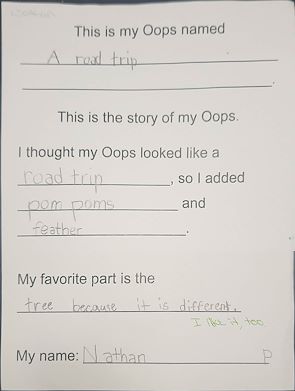 This is my Oops named
A road trip
.
This is the story of my Oops.
I thought my Oops looked like a
road trip, so I added
pom poms and
feather.
My favorite part is the
tree because it is different.
I like it, too
My name: Nathan P